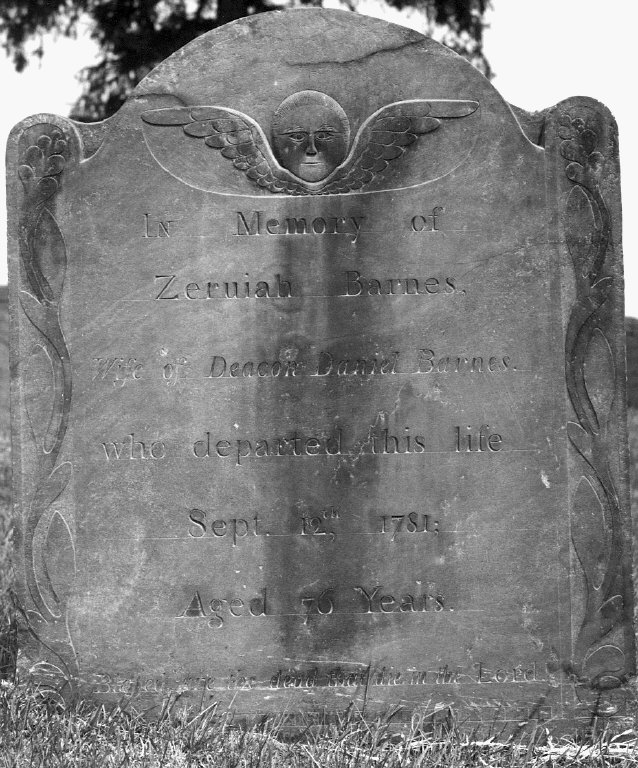 In Memory of
Zeruiah Barnes.
Wife of Deacon Daniel Barnes.
who departed this life
Sept. 12th, 1781;
Aged 76 Years.
Blessed are the dead that die in the Lord.